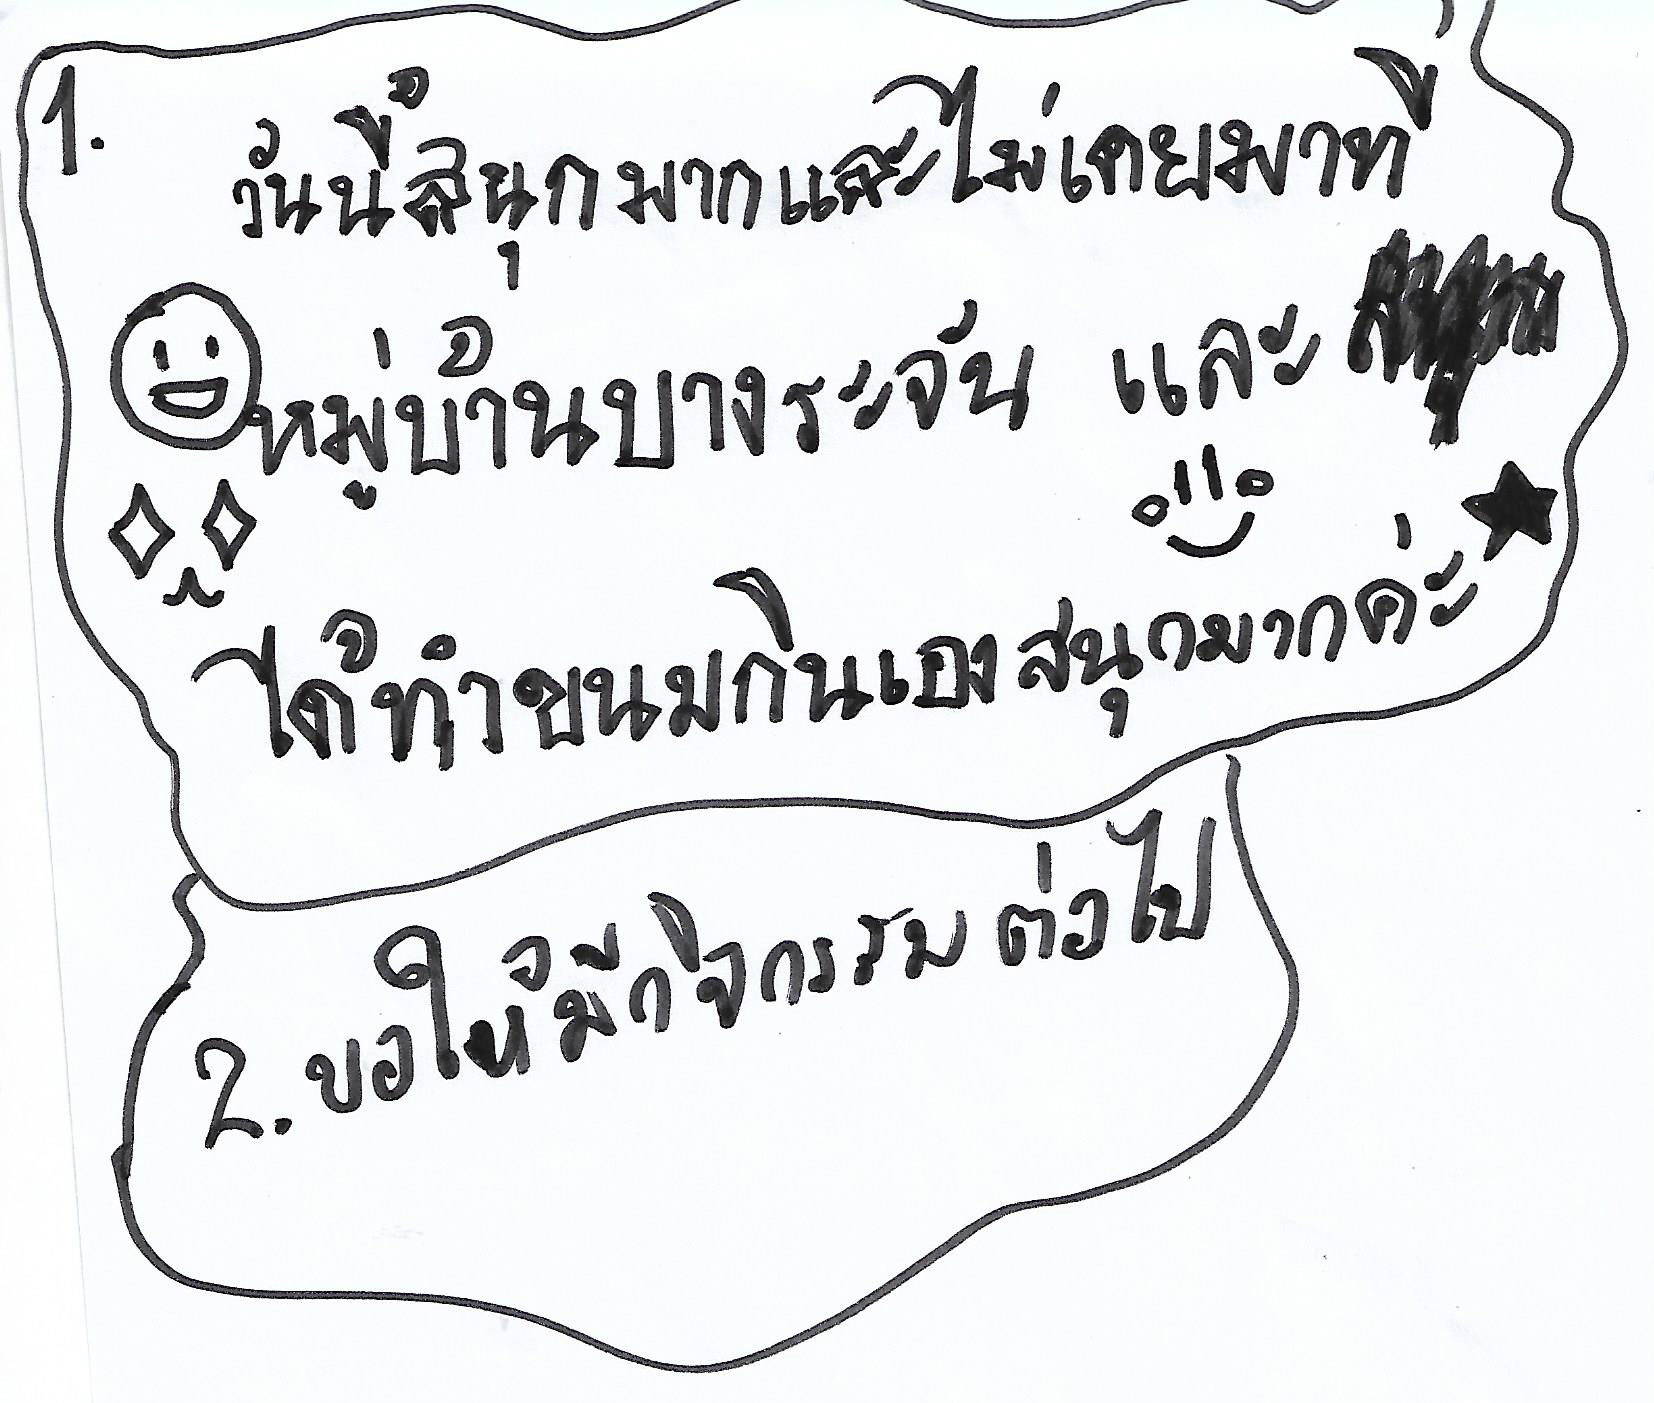 1.
วันนี้สนุกมากและไม่เคยมาที่
หมู่บ้านบางระจัน และ
ได้ทำขนมกินเองสนุกมากค่ะ
2. ขอให้มีกิจกรรม ต่อไป